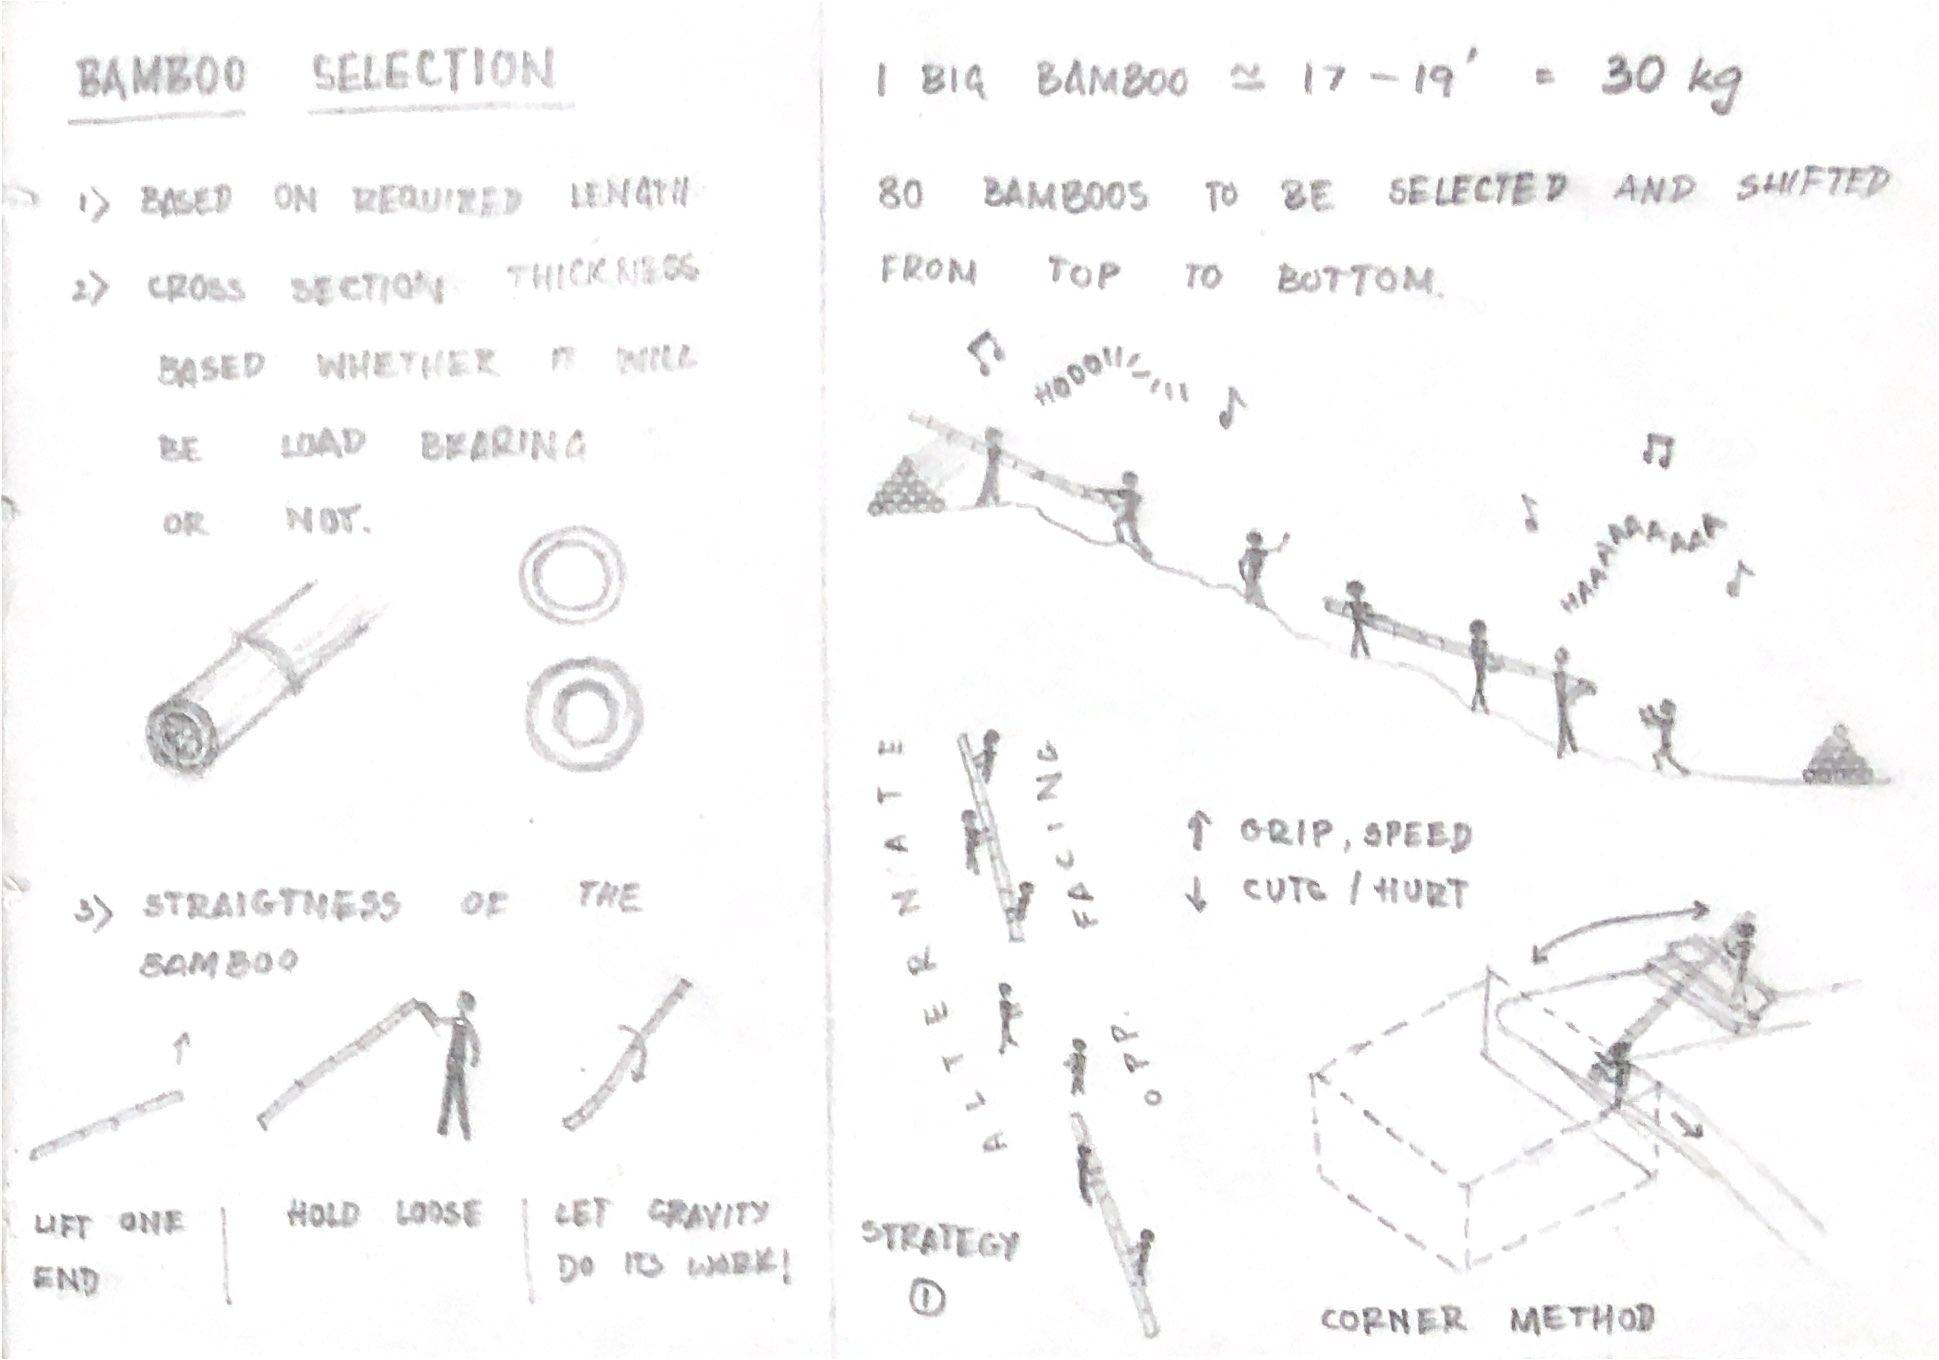 BAMBOO SELECTION
1) BASED ON REQUIRED LENGTH
2) CROSS SECTION THICKNESS
BASED WHETHER IT WILL
BE LOAD BEARING
OR NOT.
3) STRAIGTNESS OF THE
BAMBOO
LIFT ONE
END
HOLD LOOSE
LET GRAVITY
DO ITS WORK!
1 BIG BAMBOO ≃ 17 - 19' = 30 kg
80 BAMBOOS TO BE SELECTED AND SHIFTED
FROM TOP TO BOTTOM.
ALTERNATE
OPP. FACING
↑ GRIP, SPEED
↓ CUTS / HURT
STRATEGY
①
CORNER METHOD